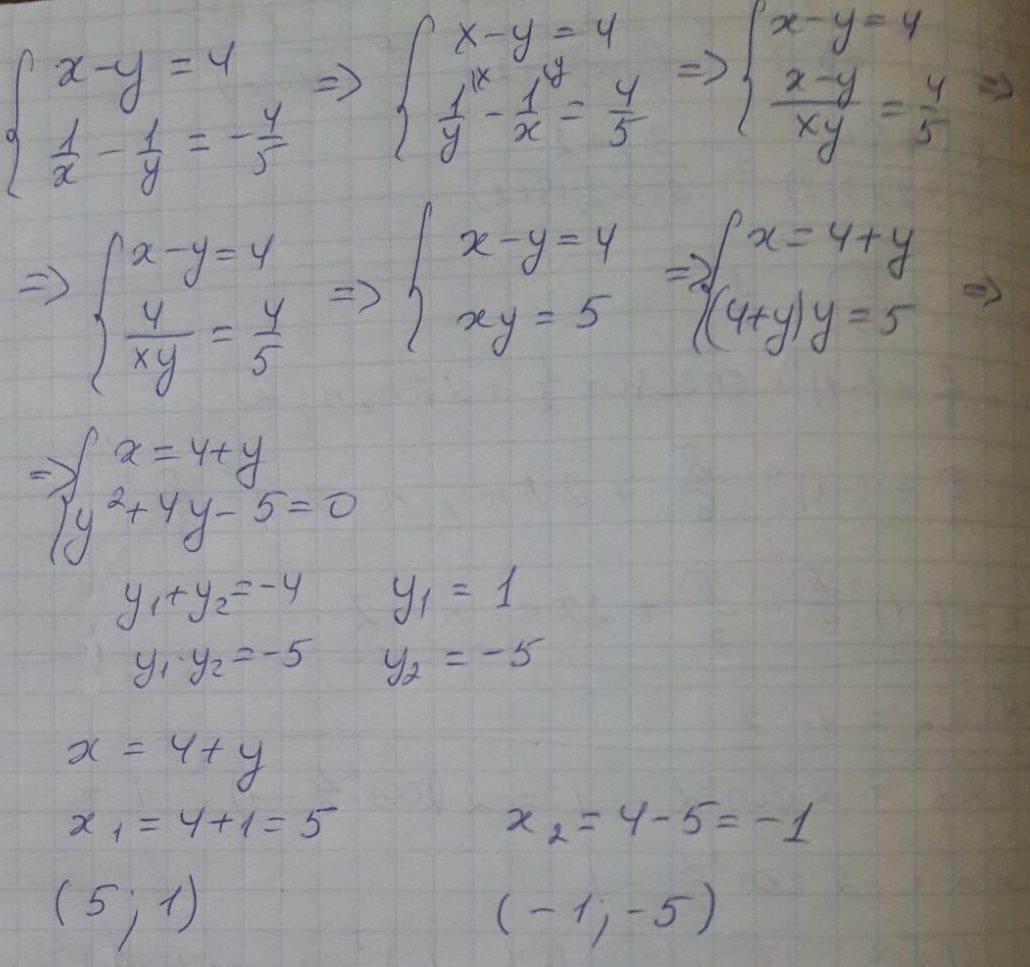 { x-y = 4 => { x-y = 4 => { x-y = 4 =>
1/x - 1/y = -4/5 1/y - 1/x = 4/5 (x-y)/(xy) = 4/5
=> { x-y = 4 => { x-y = 4 => { x = 4+y =>
4/(xy) = 4/5 xy = 5 (4+y)y = 5
=> { x = 4+y
y² + 4y - 5 = 0
y₁+y₂ = -4 y₁ = 1
y₁·y₂ = -5 y₂ = -5
x = 4+y
x₁ = 4+1 = 5 x₂ = 4-5 = -1
(5; 1) (-1; -5)